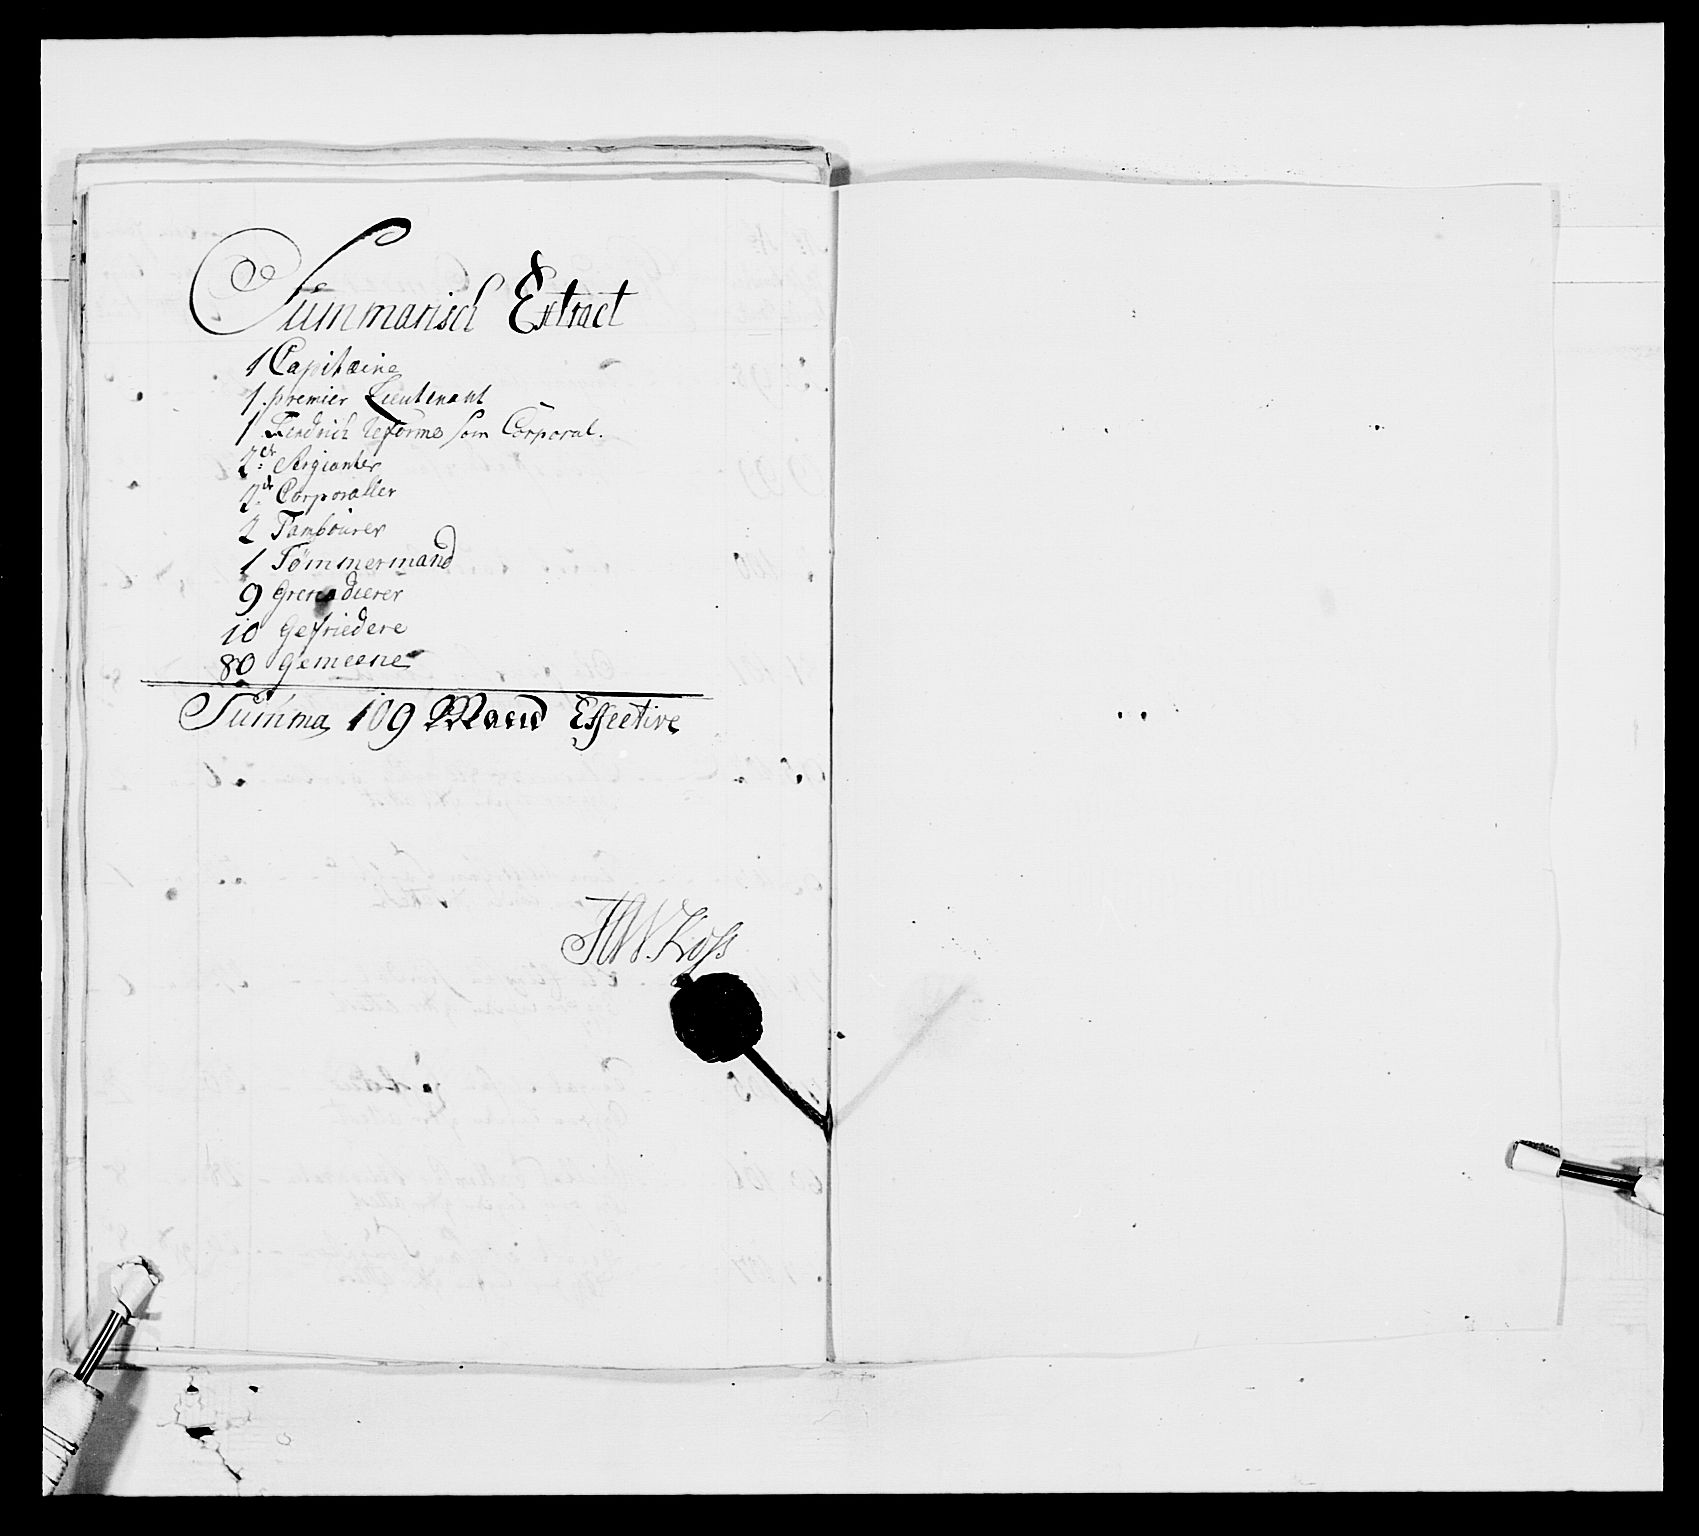 Summarisch Extract
1 Capitaine
1. premier Lieutenant
1 Fendrich Reforme som Corporal.
2: Sergianter
2. Corporaller
2 Tambourer
1 Tømmermand
9 Grenadierer
10 Gefriedere
80 Gemeene
Summa 109 Mand Effective
Koss